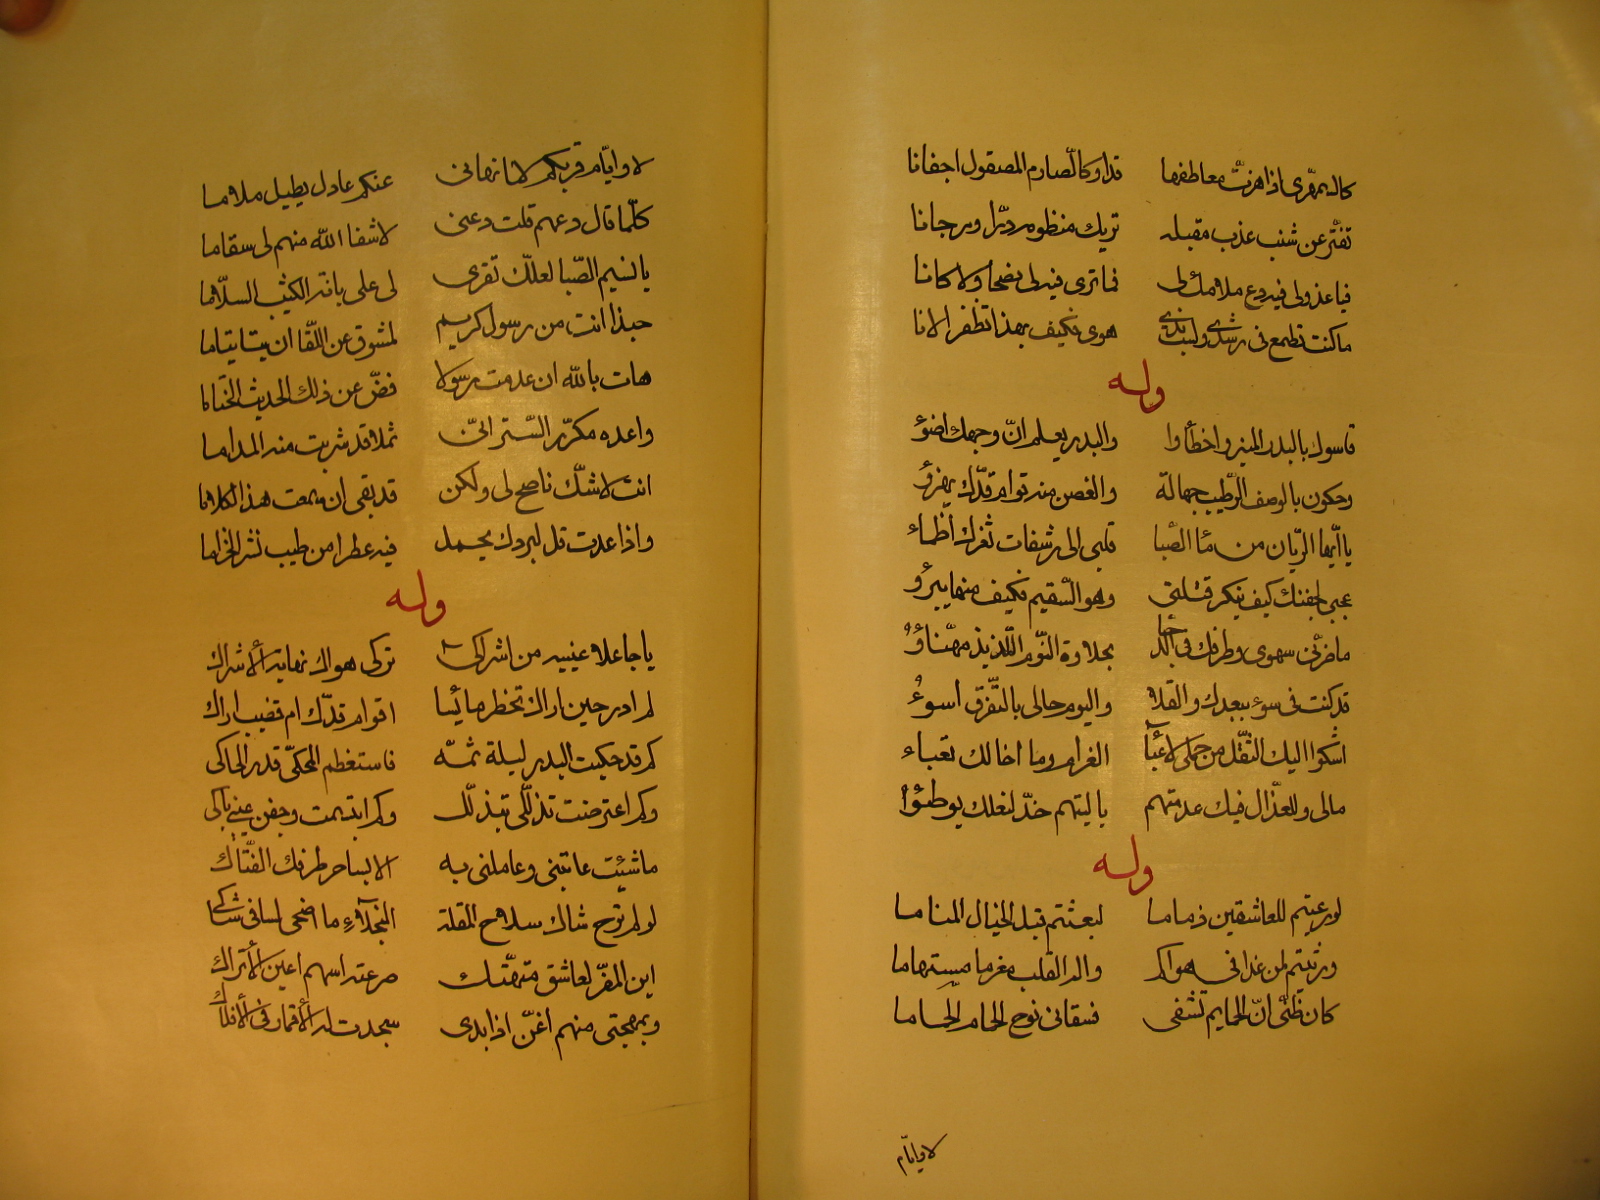 كالسمهرى اذا هزت معاطفها قدا وكالصارم المصقول اجفانا
تفتر عن شنب عذب مقبله تريك منظومه درّا ومرجانا
فيا عذولى فيه دع ملامك لى فما ترى فيه لى نصحا ولا كانا
ما كنت تطمع فى رشدى ولست بذى هوى فكيف بهذا تظفر الانا
وله
قاسوك بالبدر المنير واخطأوا والبدر يعلم انّ وجهك اضوؤ
وحكون بالوصف الرّطيب جهالة والغصن منه قوام قدّك يهزؤ
يا ايّها الريّان من مآ الصّبا قلبى الى رشفات ثغرك اظماء
عجبى لجفنك كيف ينكر قتلتى وهو السّقيم فكيف منها يبرؤ
ما ضرّنى سهوى وطرفك فى الدّجا بحلاوة النّوم اللّذيذ مهنّاؤ
قد كنت فى سوء ببعدك والقلا واليوم حالى بالتّفرّق أسوؤ
اشكوا اليك الثّقل من حملى لاعبآ الغرام وما اخالك تعباء
مالى وللعذّال فيك عدمتهم يا ليتهم خدّ لنعلك يوطئوا
وله
لو رعيتم للعاشقين ذماما لبعثتم قبل الخيال المناما
ورثيتم لمن غدا فى هواكم واله القلب مغرما مستهاما
كان ظنّى انّ الحمايم تشفى فسقانى نوح الحمام الحماما
لا وايّام
لا وايّام قربكم لا نهانى عنكم عاذل يطيل ملاما
كلّما قال دعهم قلت دعنى لا شفا اللّه منهم لى سقاما
يا نسيم الصّبا لعلّك تقرى لى على بانة الكثيب السلّاما
حبذا انت من رسول كريم لمشوق عن اللّقا ان يتا يتاما
هات باللّه ان عدمت رسولا فضّ عن ذلك الحديث الختاما
واعده مكرّر السّتر انّى ثملا قد شربت منه المداما
انت لا شكّ ناصح لى ولكن قد بقى ان سمعت هذا الكلاما
واذا عدت قل لبردك يحمل فيه عطرا من طيب نشر الخزاما
وله
يا جاعلا عينيه من اشراكى تركى هواك نهاية الأشراك
لم ادر حين اراك تخطر مائيا اقوام قدّك ام قضيب اراك
كم قد حكيت البدر ليلة تمّه فاستعظم المحكىّ قدر الحاكى
وكم اعترضت تذلّلى بتذلّل وكم ابتسمت وجفن عينى باكى
ما شئت عاتبنى وعاملنى به الا بساحر طرفك الفتّاك
لو لم ترح شاك سلاح المقلة النجلآء ما اضحى لسانى شاكى
اين المفرّ لعاشق متهتّك صرعته اسهم اعين الأتراك
وبمهجتى منهم أغنّ اذا بدى سجدت له الأقمار فى الأفلاك